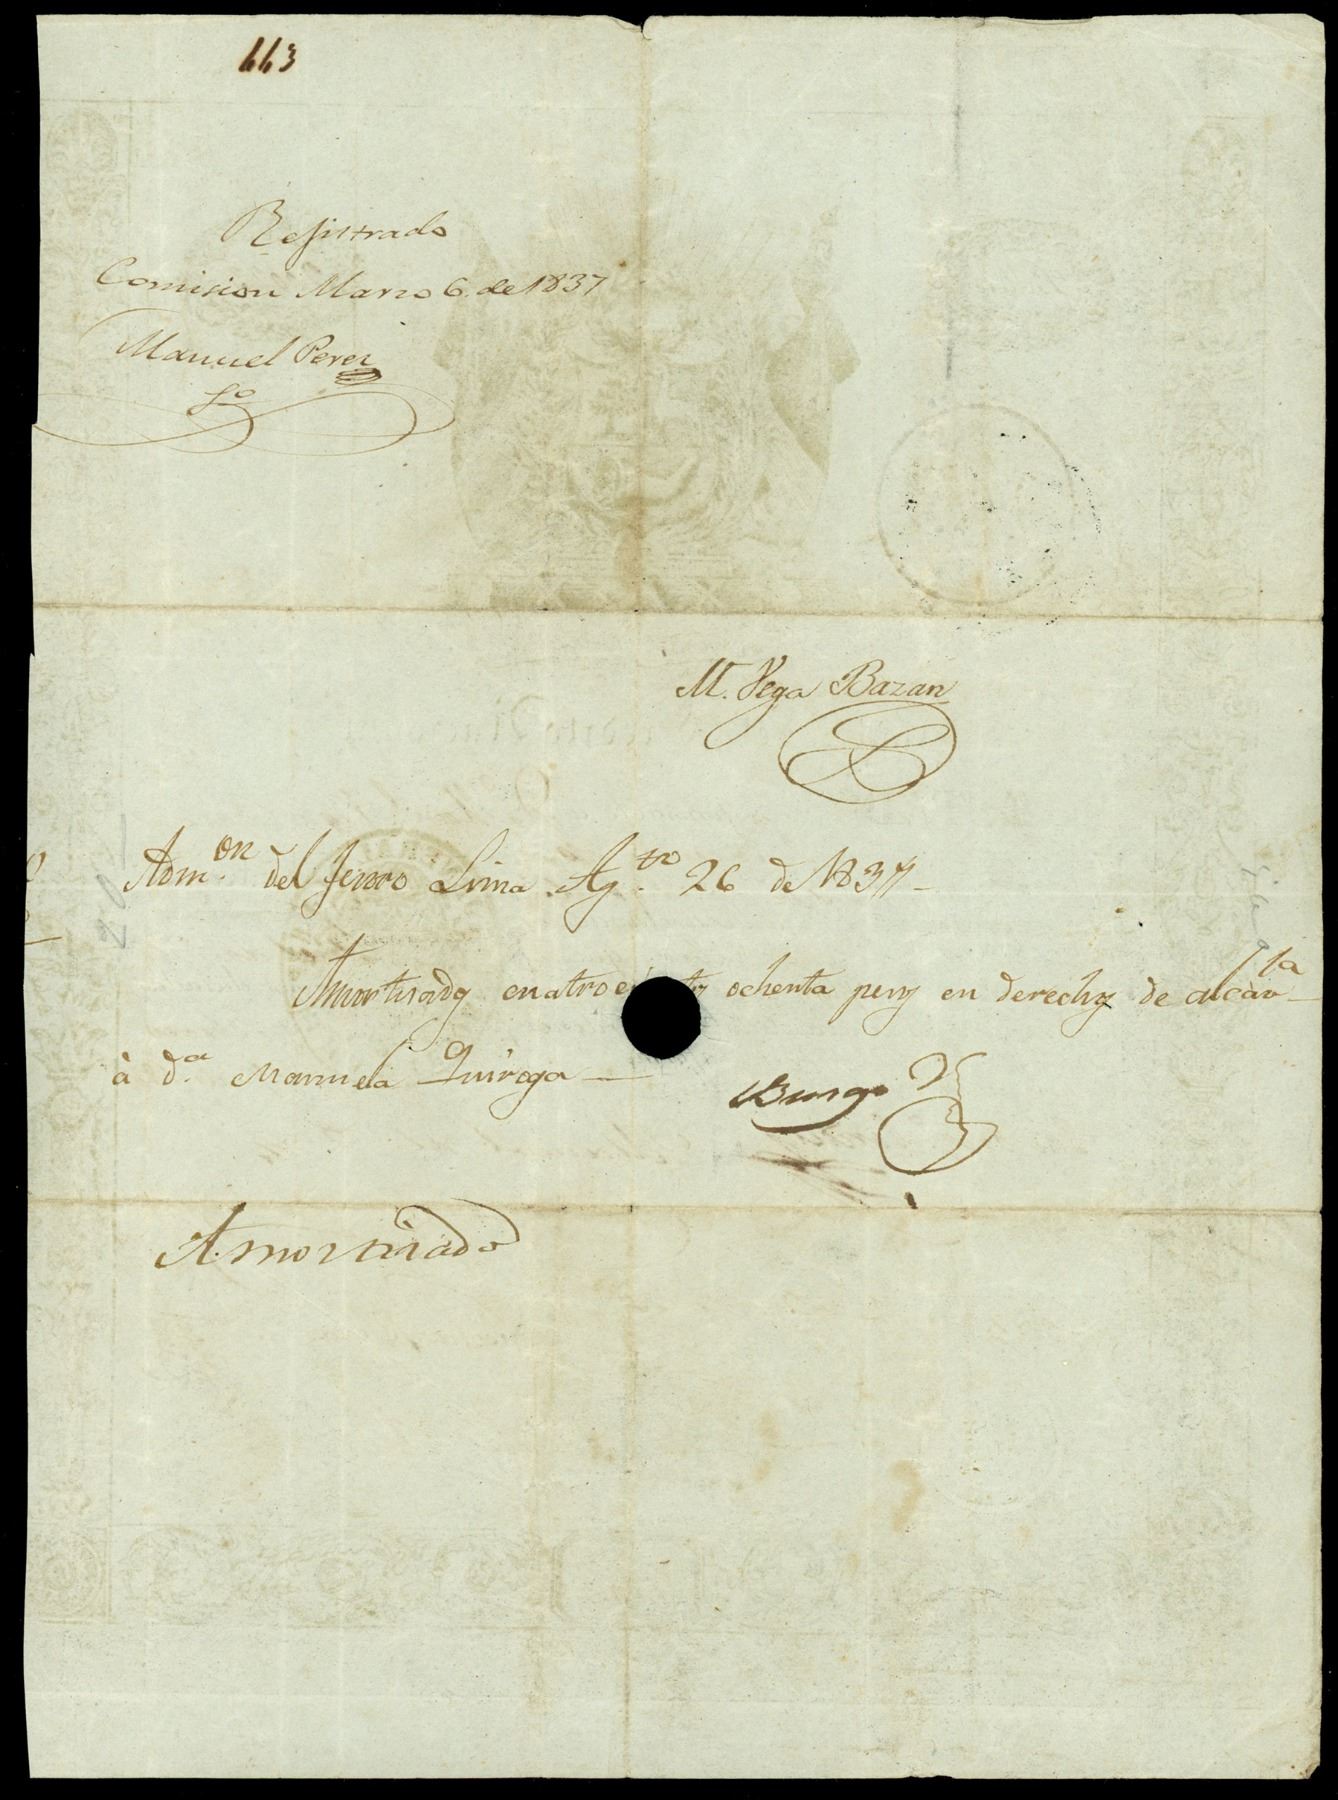 663
Rejistrado
Comision Marzo 6. de 1837
Manuel Perez
So
M. Vega Bazan
Adm.on del Tesoro Lima Ag.to 26 de 1837
Amortisados cuatrocientos ochenta pesos en derechos de alcav.la
à d.a Manuela Quiroga
Burgo
Amortizado